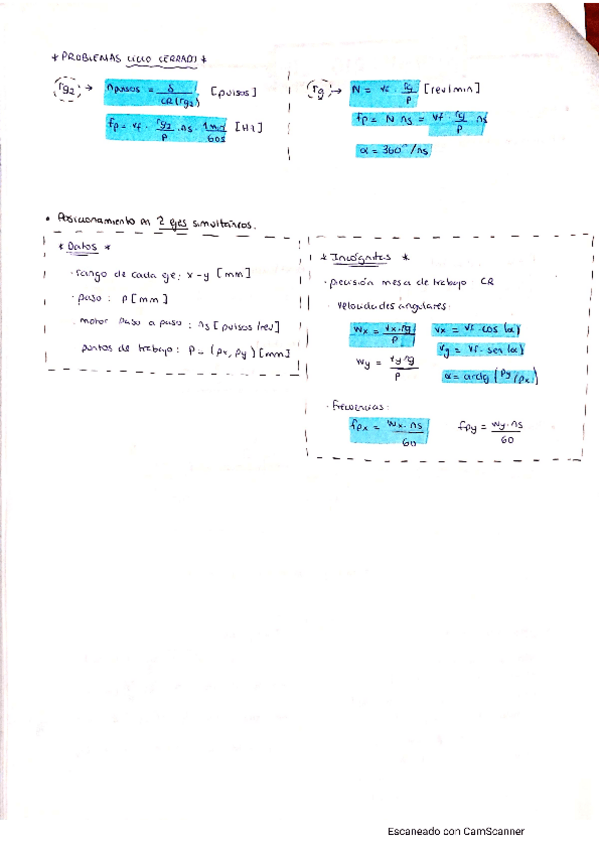 * PROBLEMAS CICLO CERRADO *
rg2 → npulsos = δ / CR(rg2) [pulsos]
fp = vf · rg2/p · ns · 1min/60s [Hz]
rg → N = vf · rg/p [rev/min]
fp = N ns = vf · rg/p ns
α = 360°/ns
• Posicionamiento en 2 ejes simultáneos.
* Datos *
· rango de cada eje: x-y [mm]
· paso: p [mm]
· motor paso a paso: ns [pulsos/rev]
puntos de trabajo: P = (Px, Py) [mm]
* Incógnitas *
· precisión mesa de trabajo CR
· velocidades angulares:
wx = vx·rg / p vx = vf · cos(α)
wy = vy·rg / p vy = vf · sen(α)
α = arctg (Py/Px)
· frecuencias:
fpx = wx·ns / 60 fpy = wy·ns / 60
Escaneado con CamScanner